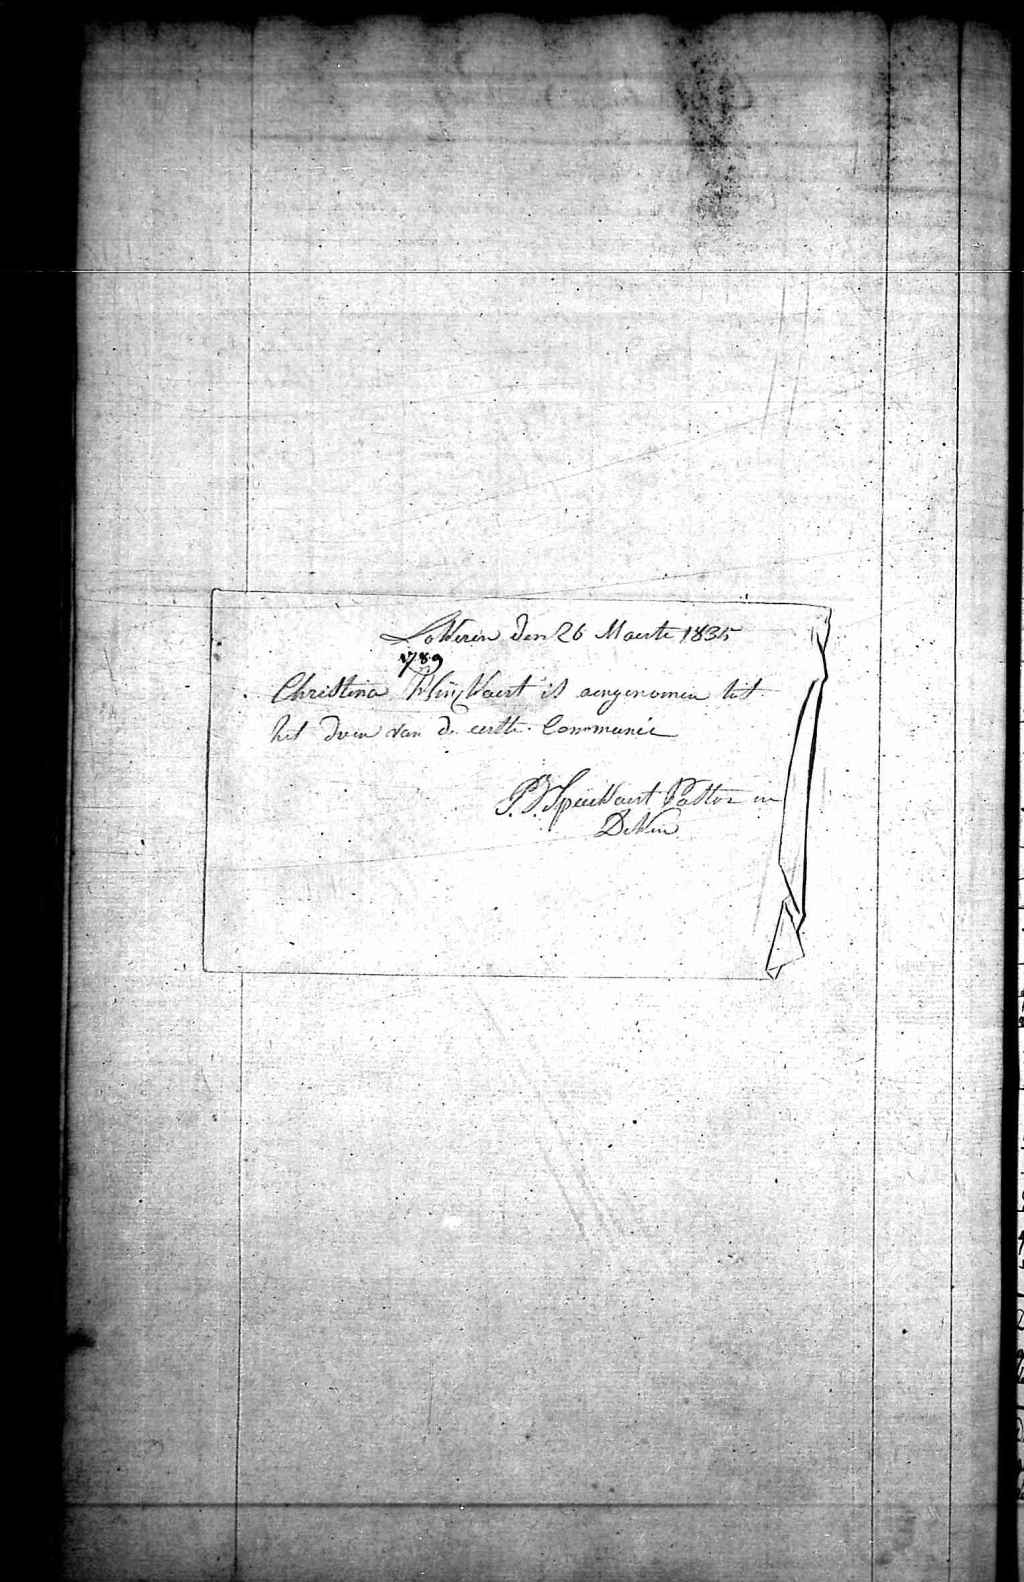 Lokeren den 26 Maerte 1835
1789
Christina is aengenomen tot
het doen van de eerste Communie
P. J. Spillaert Pastor en
Deken